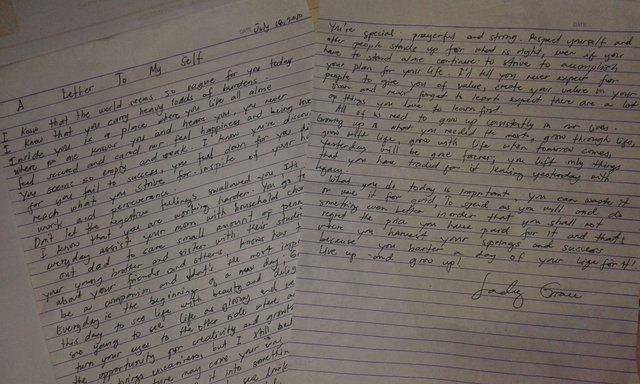 DATE July 08, 2020
A Letter To My Self
I know that the world seems so vague for you today
I know that you carry heavy loads of burdens.
Inside you is a place where you live all alone
where no one knows you and hears you, you never
feel secured and cared nor feel happiness and being love
You seems so empty and weak. I know you're discou
for you fail to success, you feel down for you do
reach what you strive for inspite of your ha
work and perseverance.
Don't let the negative feelings swallowed you,
I know that you are working harder. You go to
everyday assist your mom with household chor
out dad to care small amount of
your young brother and sister with their studie
about your friends and others knows how
be a companion and that's the most impo
Everyday is the beginning of a new day
this day to see life with beauty and delig
so young to see life as gloomy and
turn your eyes to the other side where
the opportunity for creativity and growth
brings uncaniness, but I still be
ture may cove your
it into somethin
see, look
DATE
You're special, prayerful and strong. Respect yourself and
other people stands up for what is right, even if your
have to stand alone continue to strive to accomplish
your plan for your life. I'll tell you never expect for
people to give you of value, create your value in your
own and never forget to learn expect there are a lot
of things you have to learn first.
All of us need to grow up consistently in our lives.
Growing up is what you needed the most, grow through life,
grow with life, grow with life when tomorrow comes,
yesterday will be gone forever, you left only things
that you have traded for it leaving yesterday with
again.
What you do today is important, you can waste it
or use it for good to spend as you will and do
something even better inorder that you shall not
regret the price you have paid for it and that's
where you harvest your springs and success
because you barter a day of your life for it!
Live up and grow up!
Grace